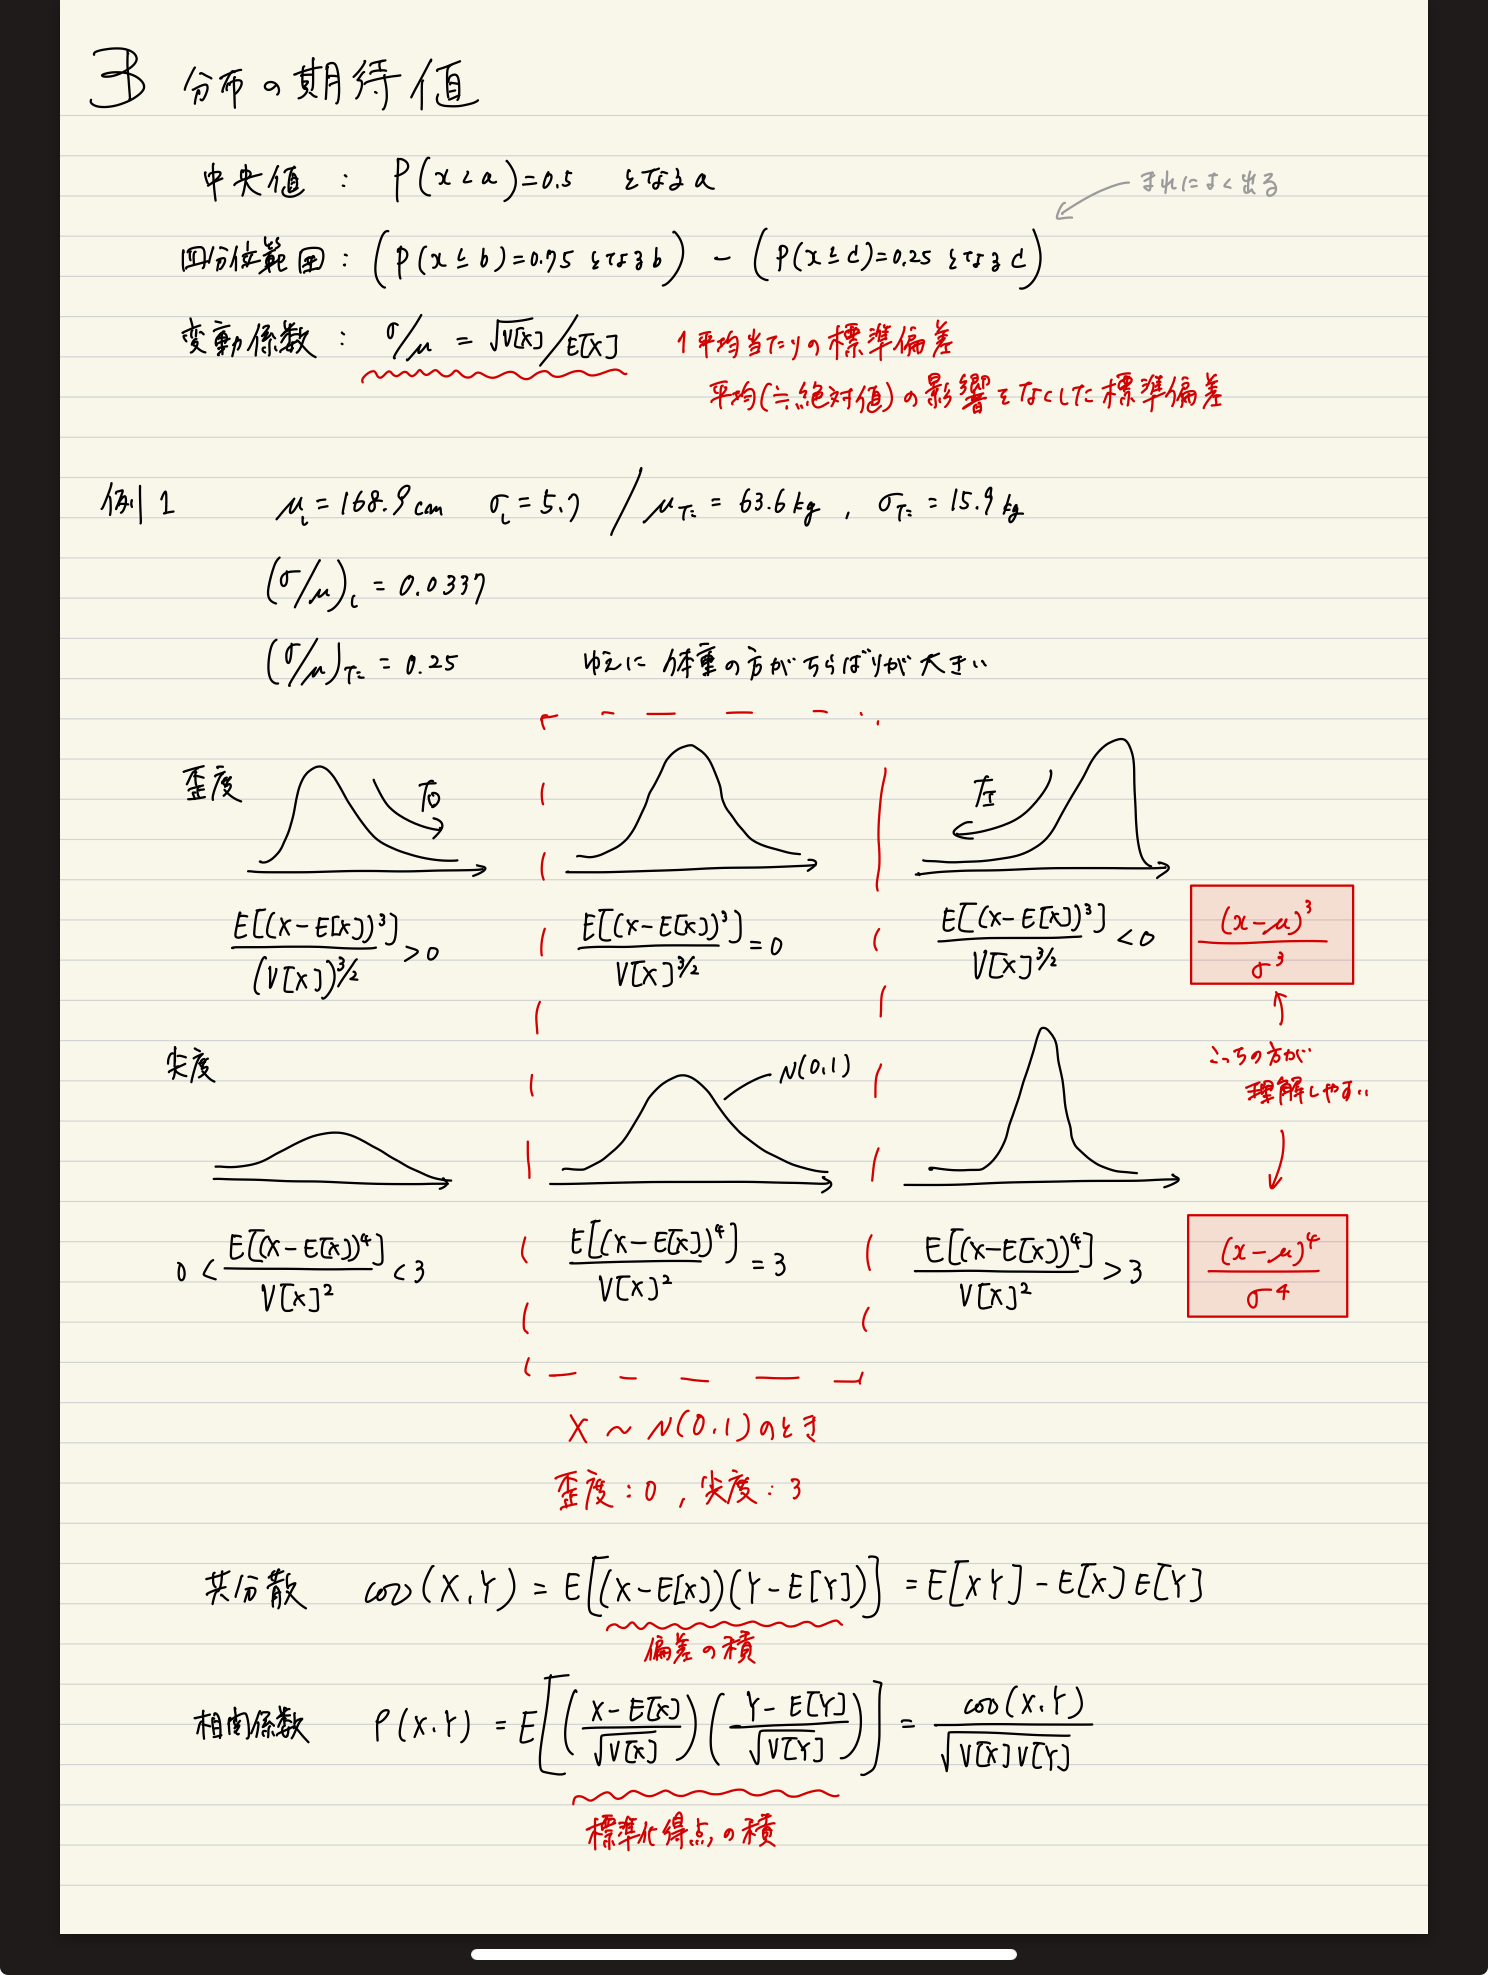 3 分布の期待値
中央値 : P(x<a)=0.5 となるa
まれによく出る
四分位範囲 : (P(x≦b)=0.75となるb) - (P(x≦c)=0.25となるc)
変動係数 : σ/μ = √V[X]/E[X] 1平均当たりの標準偏差
平均(≒絶対値)の影響をなくした標準偏差
例1 μし=168.9cm σし=5.7 / μた=63.6kg, σた=15.9kg
(σ/μ)し=0.0337
(σ/μ)た=0.25 ゆえに 体重の方がちらばりが大きい
歪度 右 左
E[(X-E[X])³]/(V[X])^3/2 > 0 E[(X-E[X])³]/V[X]^3/2 = 0 E[(X-E[X])³]/V[X]^3/2 < 0 (x-μ)³/σ³
こっちの方が
理解しやすい
尖度 N(0,1)
0 < E[(X-E[X])⁴]/V[X]² < 3 E[(X-E[X])⁴]/V[X]² = 3 E[(X-E[X])⁴]/V[X]² > 3 (x-μ)⁴/σ⁴
X ~ N(0,1)のとき
歪度:0, 尖度:3
共分散 cov(X,Y) = E[(X-E[X])(Y-E[Y])] = E[XY]-E[X]E[Y]
偏差の積
相関係数 ρ(X,Y) = E[((X-E[X])/√V[X])((Y-E[Y])/√V[Y])] = cov(X,Y)/√V[X]V[Y]
標準化得点の積